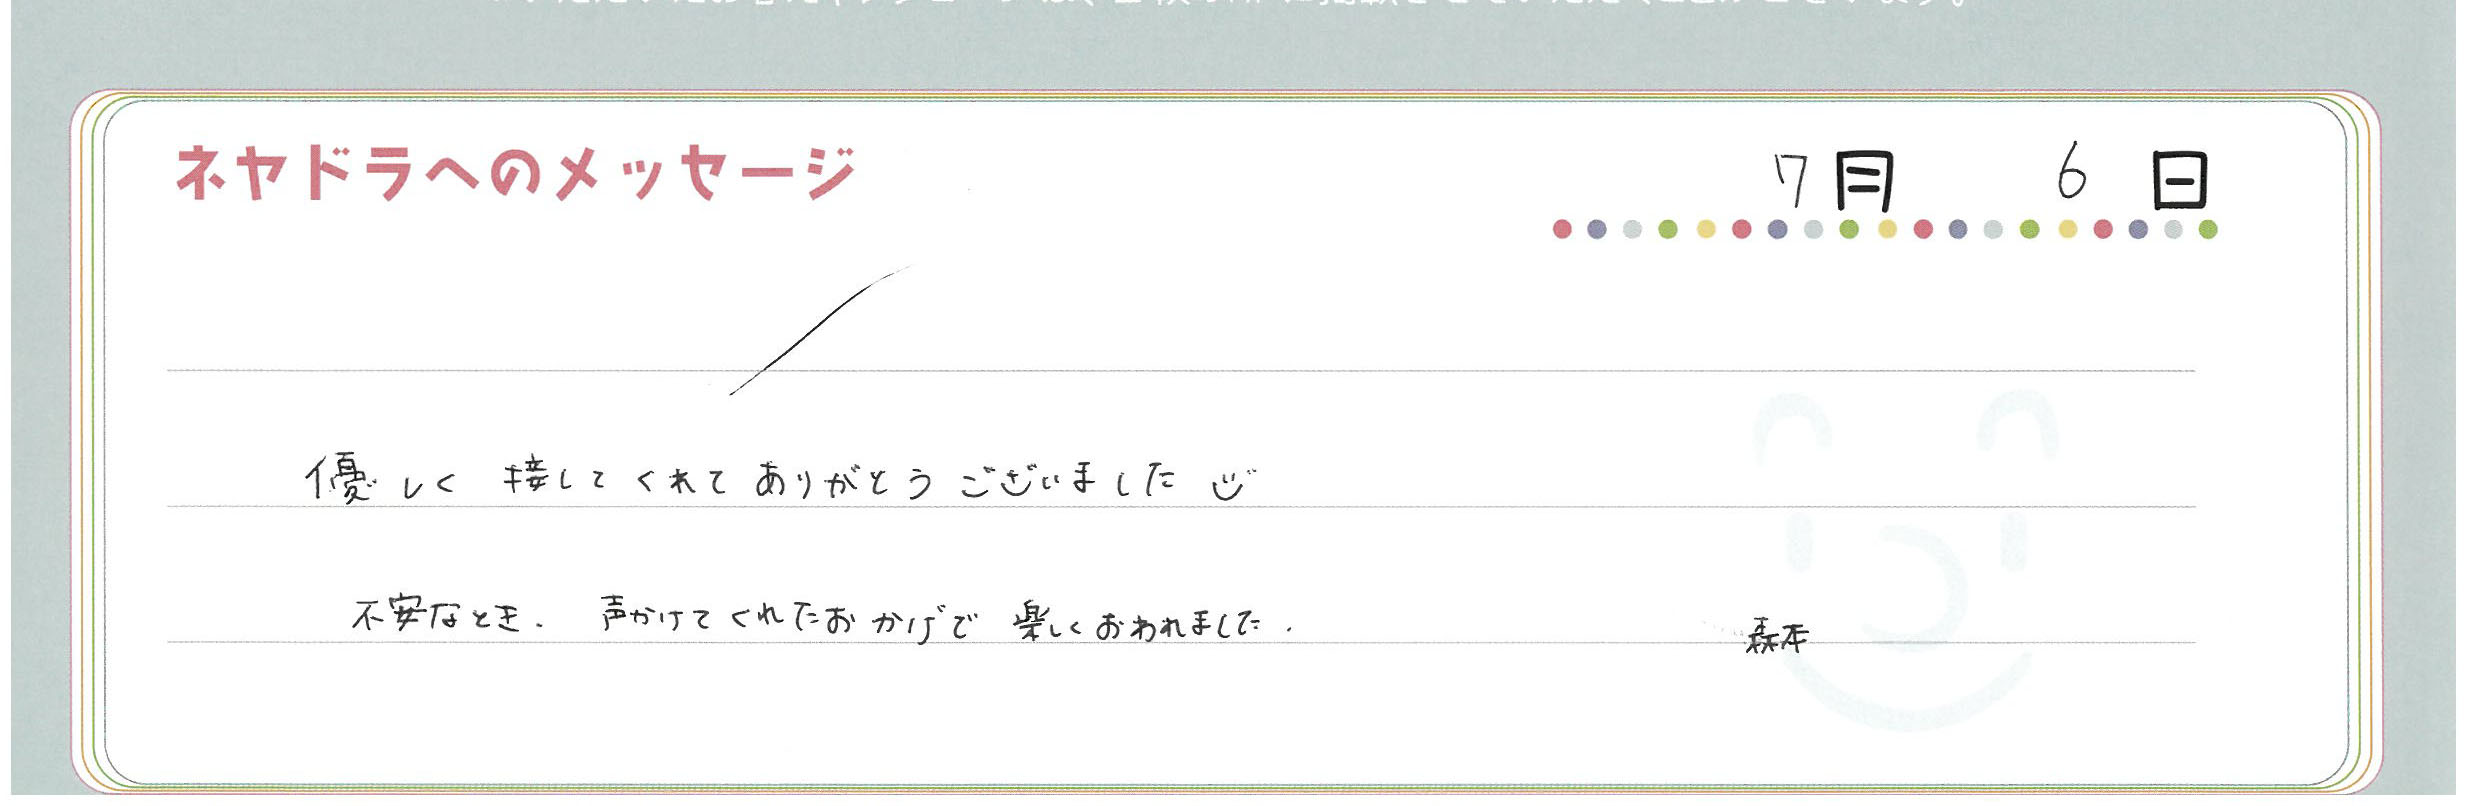 ネヤドラへのメッセージ
7月 6日
優しく 接してくれてありがとうございました
不安なとき. 声かけてくれたおかげで 楽しくおわれました.
森本